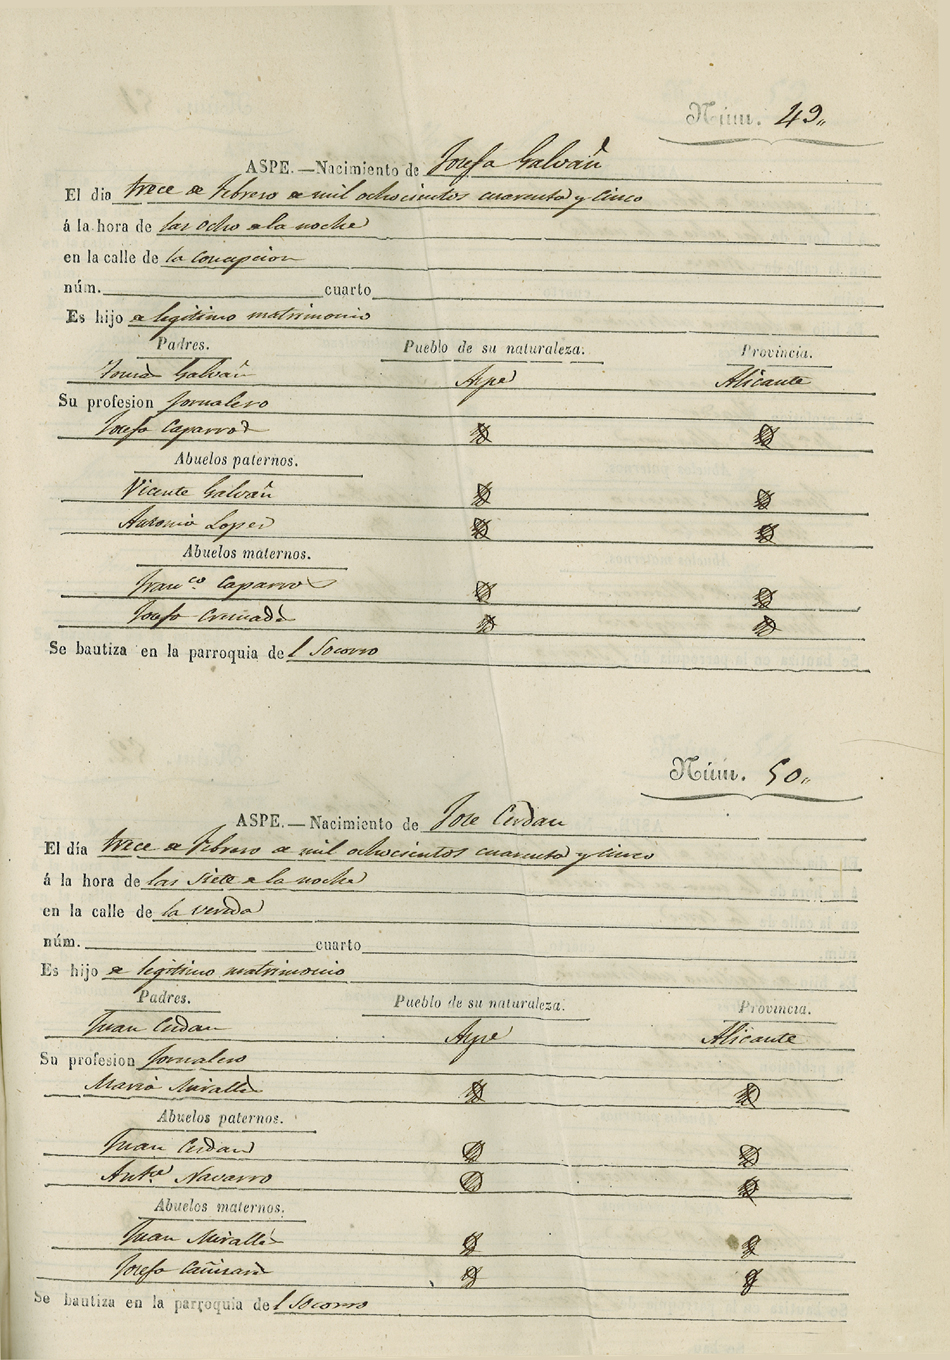 Núm. 49.
ASPE.—Nacimiento de Josefa Galvañ
El día trece de Febrero de mil ochocientos cuarenta y cinco
á la hora de las ocho de la noche
en la calle de la Concepcion
núm. cuarto
Es hijo de legitimo matrimonio
Padres. Pueblo de su naturaleza. Provincia.
Tomas Galvañ Aspe Alicante
Su profesion Jornalero
Josefa Caparros
Abuelos paternos.
Vicente Galvañ
Antonia Lopez
Abuelos maternos.
Franco. Caparros
Josefa Cremades
Se bautiza en la parroquia del Socorro
Núm. 50.
ASPE.—Nacimiento de Jose Cerdan
El día trece de Febrero de mil ochocientos cuarenta y cinco
á la hora de las siete de la noche
en la calle de la vereda
núm. cuarto
Es hijo de legitimo matrimonio
Padres. Pueblo de su naturaleza. Provincia.
Juan Cerdan Aspe Alicante
Su profesion Jornalero
Maria Miralles
Abuelos paternos.
Juan Cerdan
Anta. Navarro
Abuelos maternos.
Juan Miralles
Josefa Cañizares
Se bautiza en la parroquia del Socorro